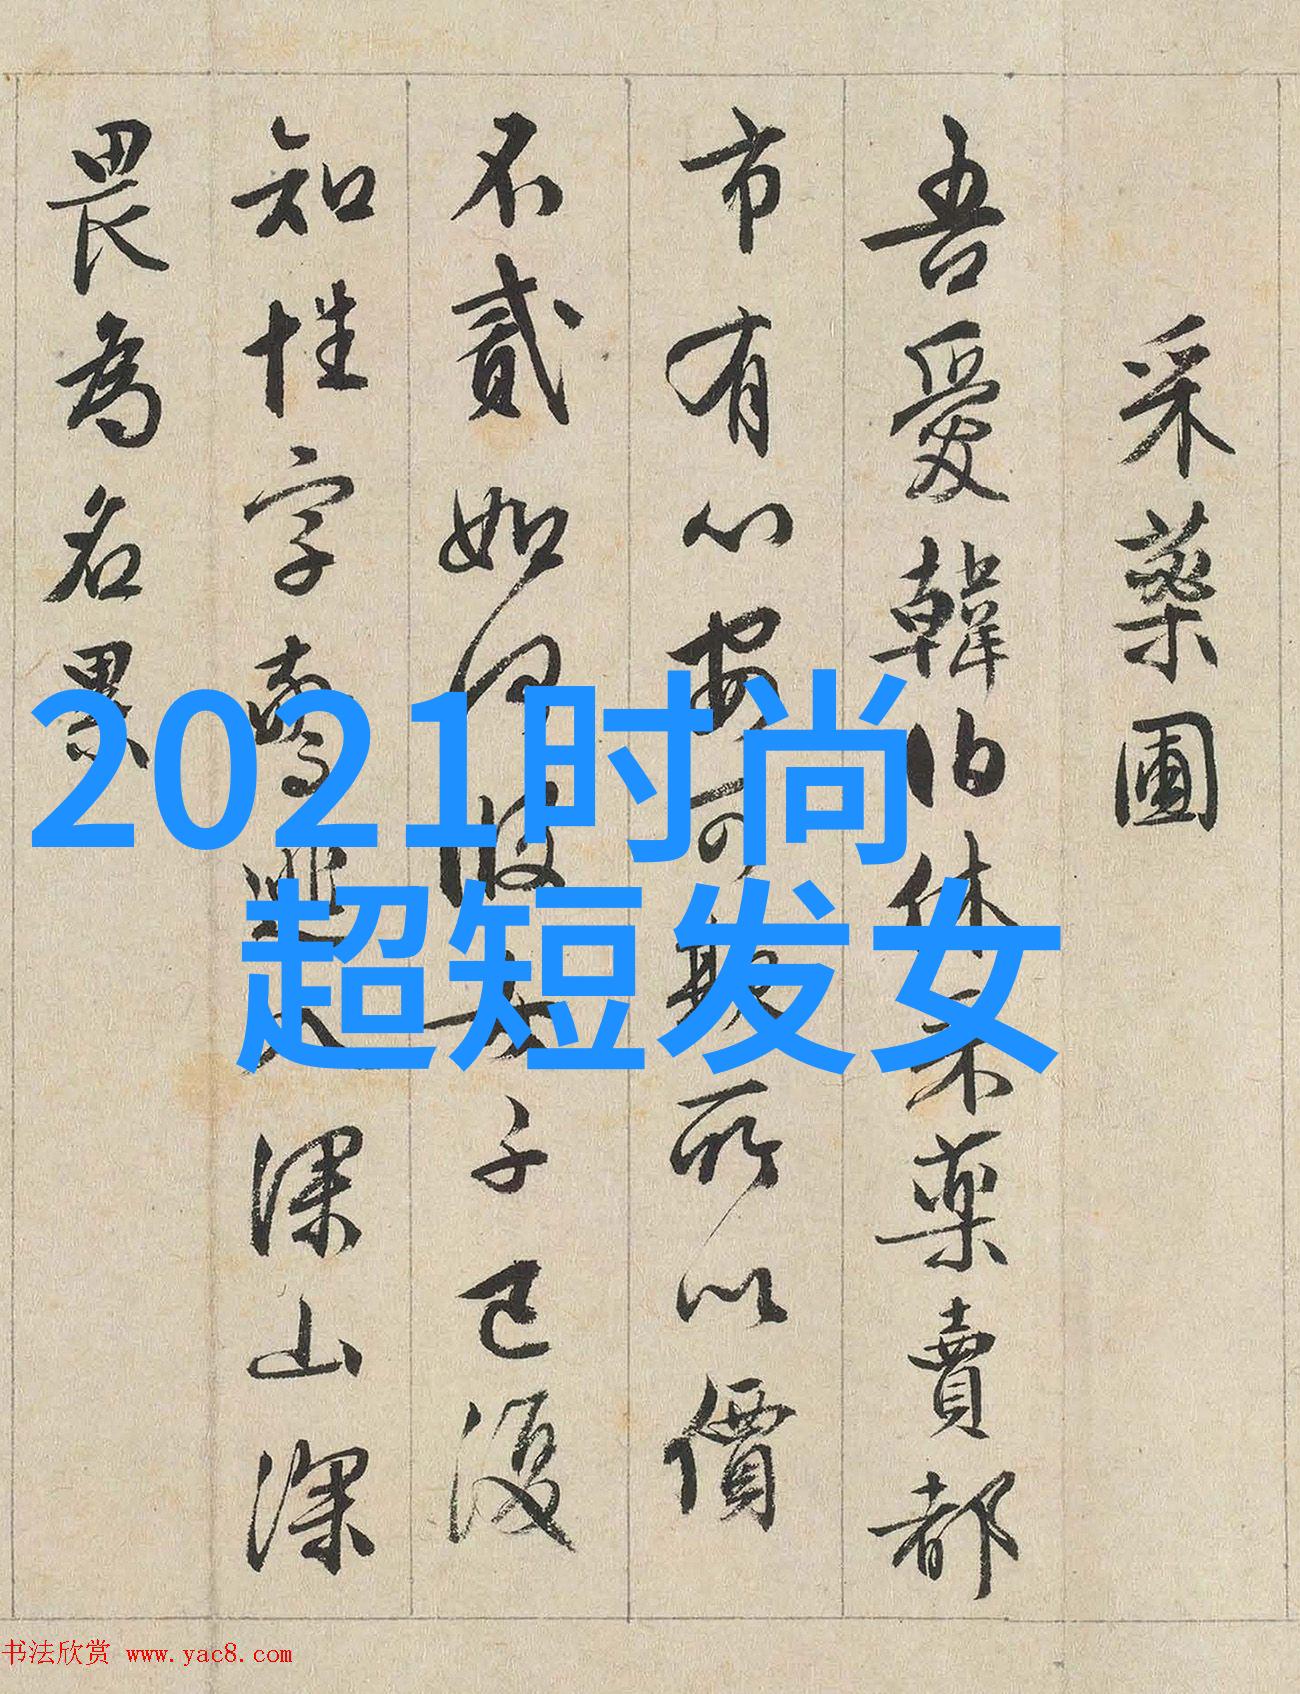 采藥圃
吾愛韓伯休采藥賣都
市有心安可欺所以價
不貳如何彼女子已復
知姓字驚逃入深山深
畏為名累
2021时尚
超短发女
书法欣赏 www.yac8.com